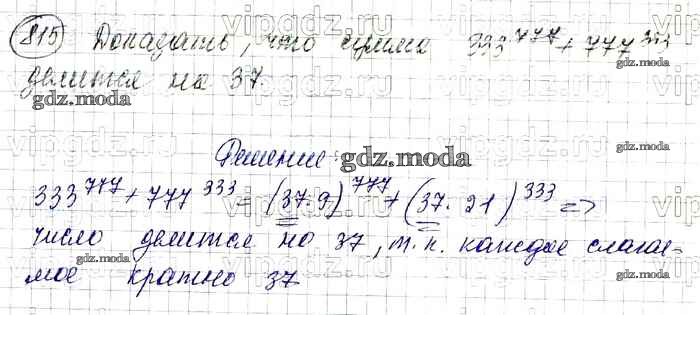 815 Доказать, что сумма 333^777 + 777^333
делится на 37.
gdz.moda
Решение: gdz.moda
333^777 + 777^333 = (37·9)^777 + (37·21)^333 =>
число делится на 37, т.к. каждое слагае-
gdz.moda gdz.moda
мое кратно 37
vipgdz.ru vipgdz.ru vipgdz.ru